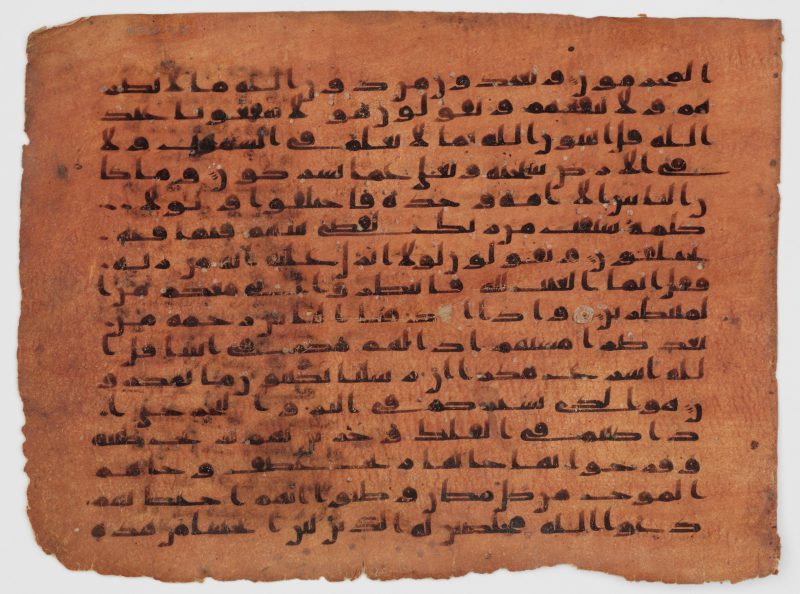 المجرمون و يعبدون من دون الله ما لا يضر
هم و لا ينفعهم و يقولون هولا شفعونا عند
الله قل اتنبون الله بما لا يعلم في السموت و لا
في الارض سبحنه و تعلى عما يشركون و ما كا
ن الناس الا امة وحدة فاختلفوا و لولا
كلمة سبقت من ربك لقضي بينهم فيما فيه
يختلفون و يقولون لولا انزل عليه اية من ربه
فقل انما الغيب لله فانتظروا اني معكم من ا
لمنتظرين و اذا اذقنا الناس رحمة من
بعد ضرا مستهم اذا لهم مكر في اياتنا قل ا
لله اسرع مكرا ان رسلنا يكتبون ما تمكرو
ن هو الذي يسيركم في البر و البحر حتى ا
ذا كنتم في الفلك و جرين بهم بريح طيبة
و فرحوا بها جاتها ريح عاصف و جاهم
الموج من كل مكان و ظنوا انهم احيط بهم
دعوا الله مخلصين له الدين لين انجيتنا من هذه